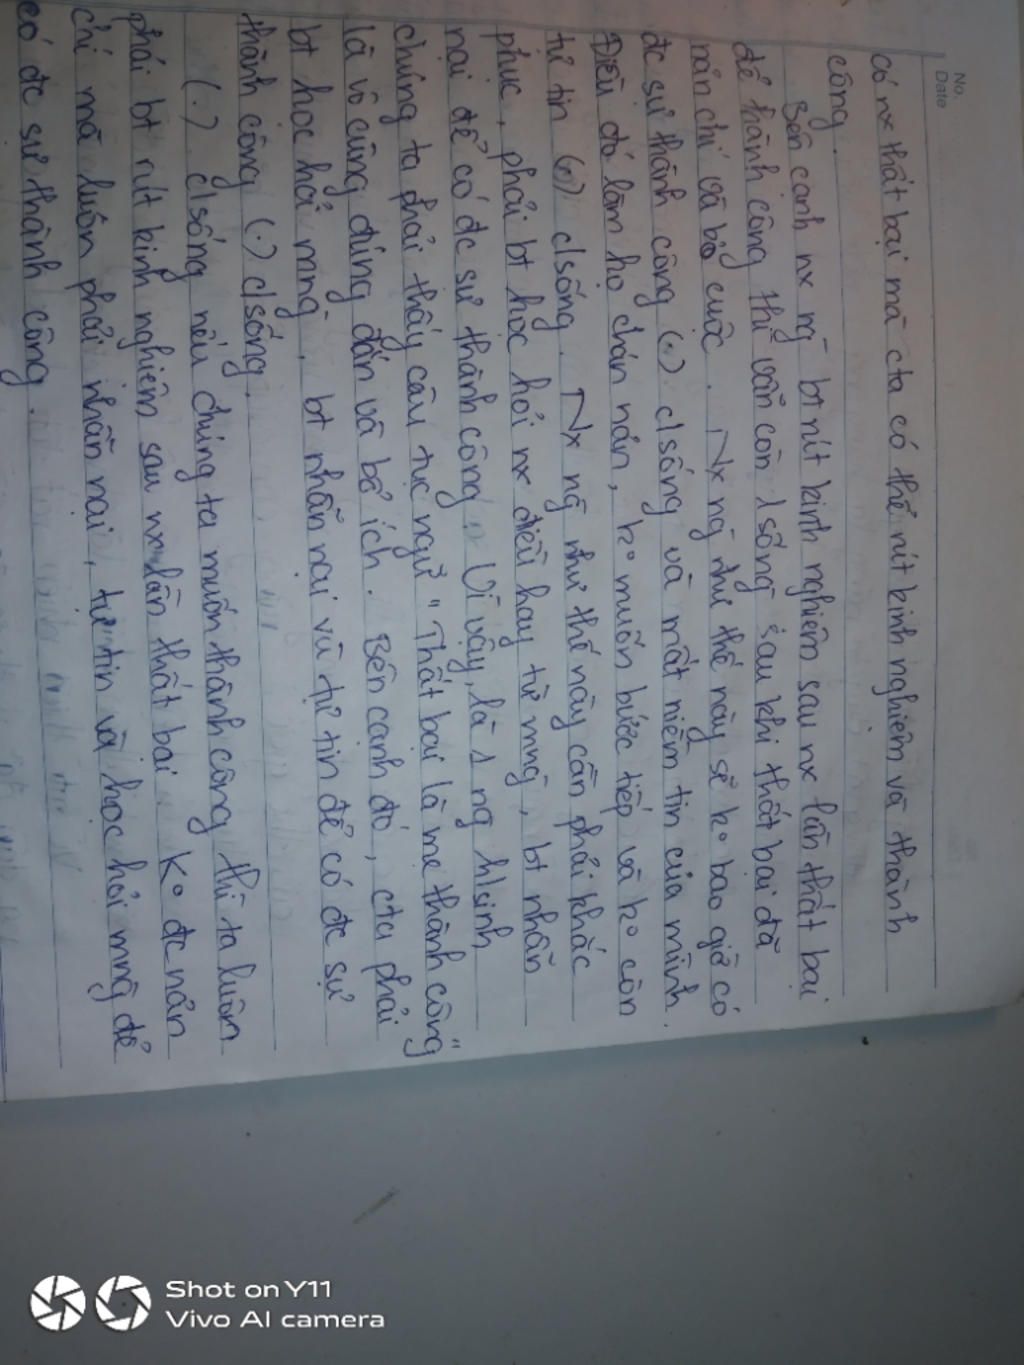 No.
Date
có nx thất bại mà cta có thể rút kinh nghiệm và thành
công.
Bên cạnh nx ng~ bt rút kinh nghiệm sau nx lần thất bại
để thành công thì vẫn còn 1 số ng~ sau khi thất bại đã
nản chí và bỏ cuộc. Nx ng~ như thế này sẽ ko bao giờ có
đc sự thành công (.) c/sống và mất niềm tin của mình.
Điều đó làm họ chán nản, ko muốn bước tiếp và ko còn
tự tin (.) c/sống. Nx ng~ như thế này cần phải khắc
phục, phải bt học hỏi nx điều hay từ mng~, bt nhẫn
nại để có đc sự thành công. Vì vậy, là 1 ng h/sinh
chúng ta phải thấy câu tục ngữ "Thất bại là mẹ thành công"
là vô cùng đúng đắn và bổ ích. Bên cạnh đó, cta phải
bt học hỏi mng~, bt nhẫn nại và tự tin để có đc sự
thành công (.) c/sống.
(.) c/sống nếu chúng ta muốn thành công thì ta luôn
phải bt rút kinh nghiệm sau nx lần thất bại. Ko đc nản
chí mà luôn phải nhẫn nại, tự tin và học hỏi mng~ để
có đc sự thành công.
Shot on Y11
Vivo AI camera